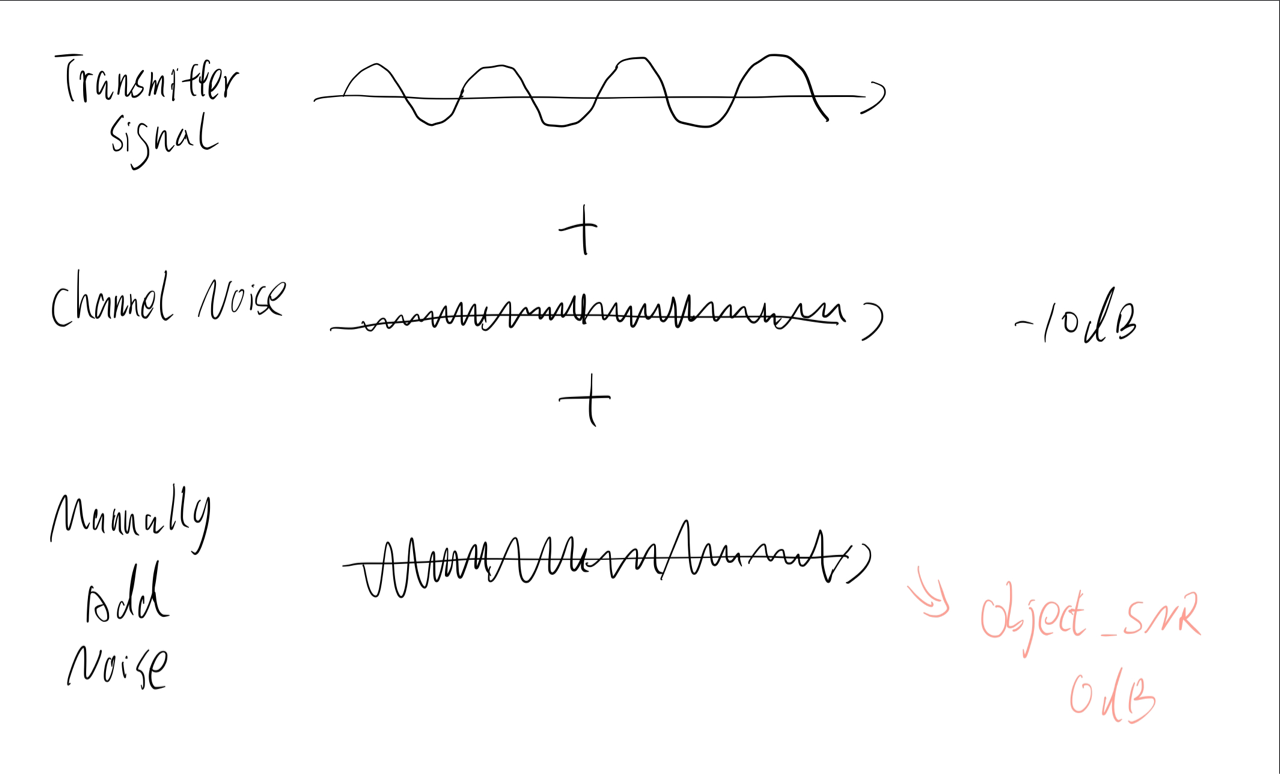 Transmitter
signal
+
channel Noise
-10dB
+
Manually
Add
Noise
object_SNR
0dB